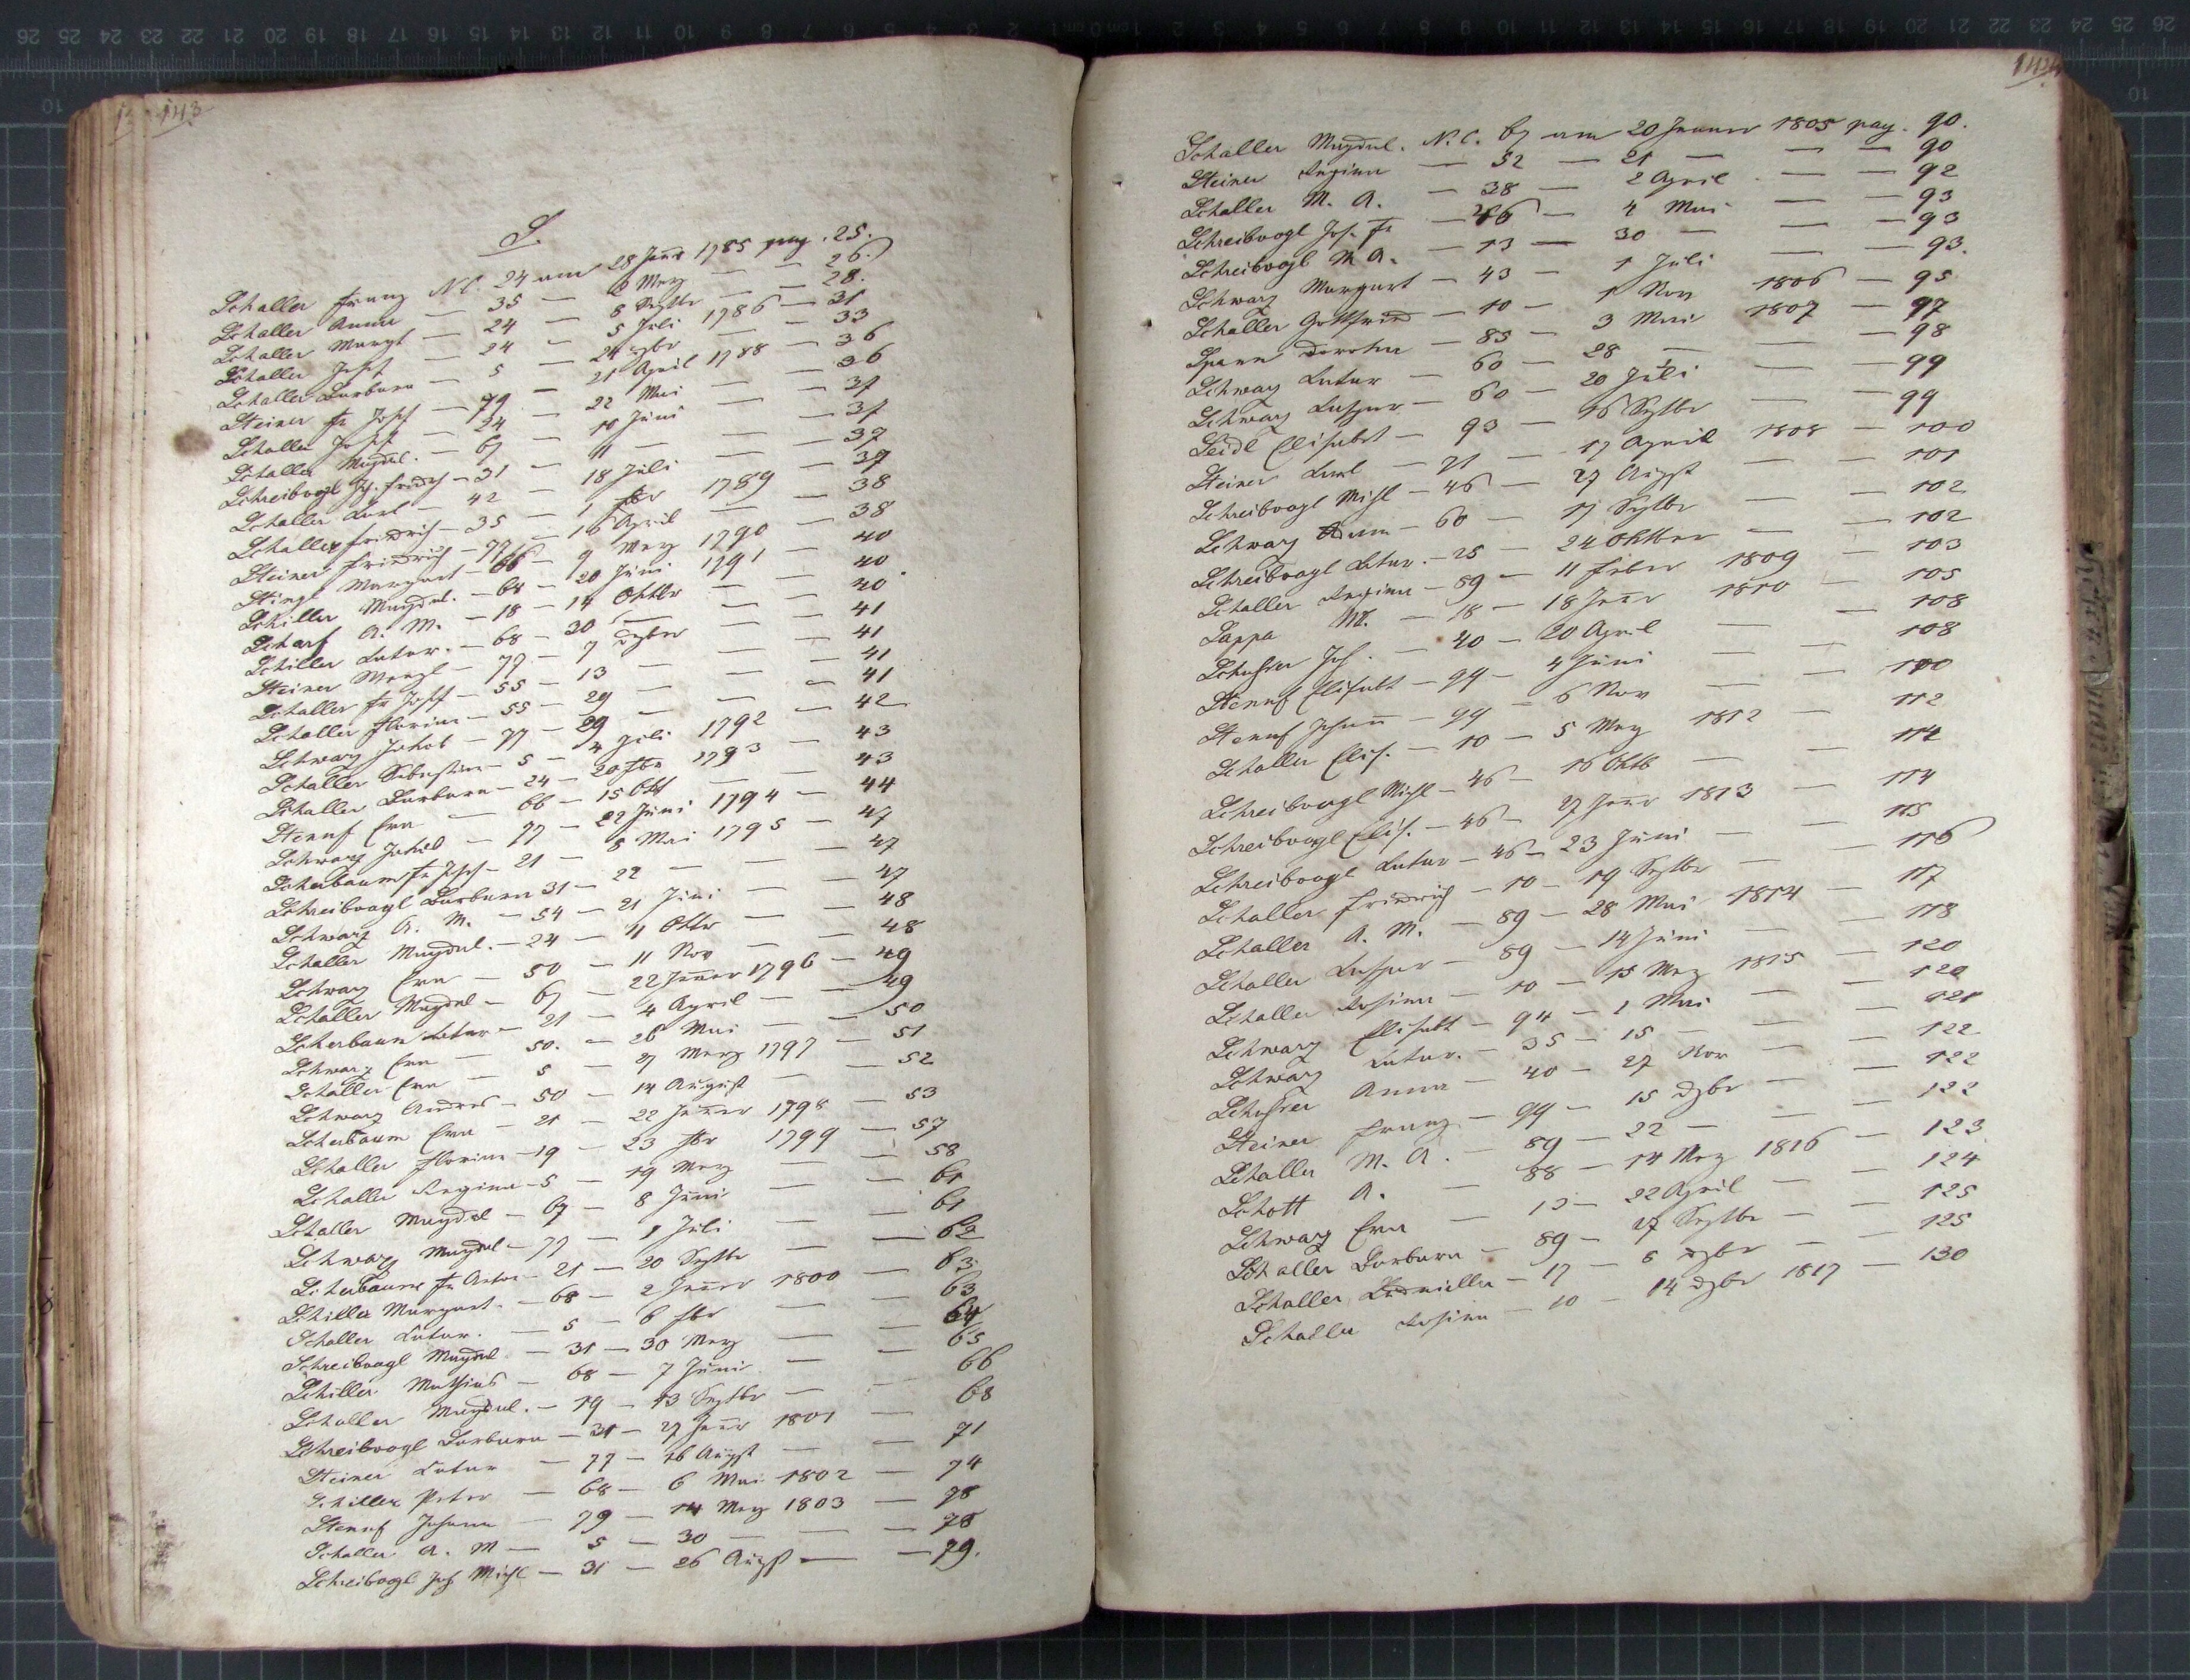 143
S.
Schaller Franz N.C. 24 am 28 Jenr 1785 pag. 25.
Schaller Anna — 35 — 2 Merz — — 26.
Schaller Margt — 24 — 8 Septbr — — 28.
Schaller Josef — 24 — 5 Juli 1786 — 31
Schaller Barbara — 5 — 24 — — 33
Steiner Fr. Josef — 79 — 21 April 1788 — 36
Schaller Josef — 24 — 22 Mai — — 36
Schaller Magdal. — 67 — 10 Juni — — 37
Schreibvogl Jos. Fridrich — 31 — 11 — — — 37
Schaller Karl — 42 — 18 Juli — — 37
Schaller Fridrich — 35 — 1 1789 — 37
Steiner Fridrich — 77 — 16 April — — 38
Margaret — 66 — 9 Merz 1790 — 38
Schiller Magdal. — 68 — 20 Juni 1791 — 40
Scharf A. M. — 18 — 14 Oktbr — — 40
Schiller Katar. — 68 — 30 — — — 40
Steiner — 77 — 7 Dzber — — 41
Schaller Fr. Josef — 55 — 13 — — — 41
Schaller Florian — 55 — 29 — — — 41
Schwarz Jakob — 77 — 29 — — — 41
Schaller Sebastian — 5 — 4 Juli 1792 — 42
Schaller Barbara — 24 — 20 1793 — 43
Eva — 66 — 15 Okt — — 43
Schwarz Jakob — 77 — 22 Juni 1794 — 44
Scherbaum Fr. Josef — 21 — 8 Mai 1795 — 47
Schreibvogl Barbara 31 — 22 — — — 47
Schwarz A. M. — 54 — 21 Juni — — 47
Schaller Magdal. — 24 — 11 Oktbr — — 48
Schwarz Eva — 50 — 11 Nov — — 48
Schaller Magdal — 67 — 22 Jenner 1796 — 49
Scherbaum Katar — 21 — 4 April — — 49
Schwarz Eva — 50. — 26 Mai — — 50
Schaller Eva — 5 — 27 Merz 1797 — 51
Schwarz Andres — 50 — 14 August — — 52
Scherbaum Eva — 21 — 22 Jenner 1798 — 53
Schaller Florian — 19 — 23 1799 — 57
Schaller Regina — 5 — 19 Merz — — 58
Schaller Magdal — 67 — 8 Juni — — 61
Schwarz Magdal — 77 — 1 Juli — — 61
Scherbaum Fr. Anton — 21 — 20 Septbr — — 62
Schiller Margaret. — 68 — 2 Jenner 1800 — 63
Schaller Katar. — 5 — 6 — — 63
Schreibvogl Magdal — 31 — 30 Merz — — 64
Schiller Mathias — 68 — 7 Juni — — 65
Schaller Magdal. — 19 — 13 Septbr — — 66
Schreibvogl Barbara — 31 — 27 Jenr 1801 — 68
Steiner Katar — 77 — 16 Augst — — 71
Schiller Peter — 68 — 6 Mai 1802 — 74
Johann — 79 — 14 Merz 1803 — 78
Schaller A. M — 5 — 30 — — — 78
Schreibvogl Jos Michl — 31 — 26 Augst — — 79.
144
Schaller Magdal. N.C. 67 am 20 Jenner 1805 pag. 90.
Steiner Regina — 52 — 21 — — — 90
Schaller M. A. — 38 — 2 April — — 92
Schreibvogl Jos. Fr — 46 — 4 Mai — — 93
Schreibvogl M A. — 13 — 30 — — — 93
Schwarz Margaret — 43 — 1 Juli — — 93.
Schaller Gottfried — 10 — 1 Nov 1806 — 95
Spann Dorothea — 83 — 3 Mai 1807 — 97
Schwarz Katar — 60 — 28 — — — 98
Schwarz Kaspar — 60 — 20 Juli — — 99
Seidl Elisabet — 93 — 16 Septbr — — 99
Steiner Karl — 21 — 17 April 1808 — 100
Schreibvogl Michl — 46 — 27 Augst — — 101
Schwarz Adam — 60 — 17 Septbr — — 102
Schreibvogl Katar. — 25 — 24 Oktber — — 102
Schaller Regina — 89 — 11 Feber 1809 — 103
Sappa — 18 — 18 Jenr 1810 — 105
Jos. — 40 — 20 April — — 108
Elisabet — 94 — 4 Juni — — 108
Johann — 44 — 6 Nov — — 110
Schaller Elis. — 10 — 5 Merz 1812 — 112
Schreibvogl Michl — 46 — 16 Oktb — — 114
Schreibvogl Elis. — 46 — 27 Jenr 1813 — 114
Schreibvogl Katar — 46 — 23 Juni — — 115
Schaller Fridrich — 10 — 19 Septbr — — 116
Schaller A. M. — 89 — 28 Mai 1814 — 117
Schaller Kaspar — 89 — 14 Juni — — 118
Schaller Rosina — 10 — 15 Merz 1815 — 120
Schwarz Elisabt — 94 — 1 Mai — — 120
Schwarz Katar. — 35 — 15 — — — 121
Anna — 40 — 27 Nov — — 122
Steiner Franz — 94 — 15 Dzbr — — 122
Schaller M. A. — 89 — 22 — — — 122
Schott A. — 88 — 14 Merz 1816 — 123
Schwarz Eva — 13 — 22 April — — 124
Schaller Barbara — 89 — 17 Septbr — — 125
Schaller Ludmilla — 17 — 6 Dzbr — — 125
Schaller Rosina — 10 — 14 Dzbr 1817 — 130